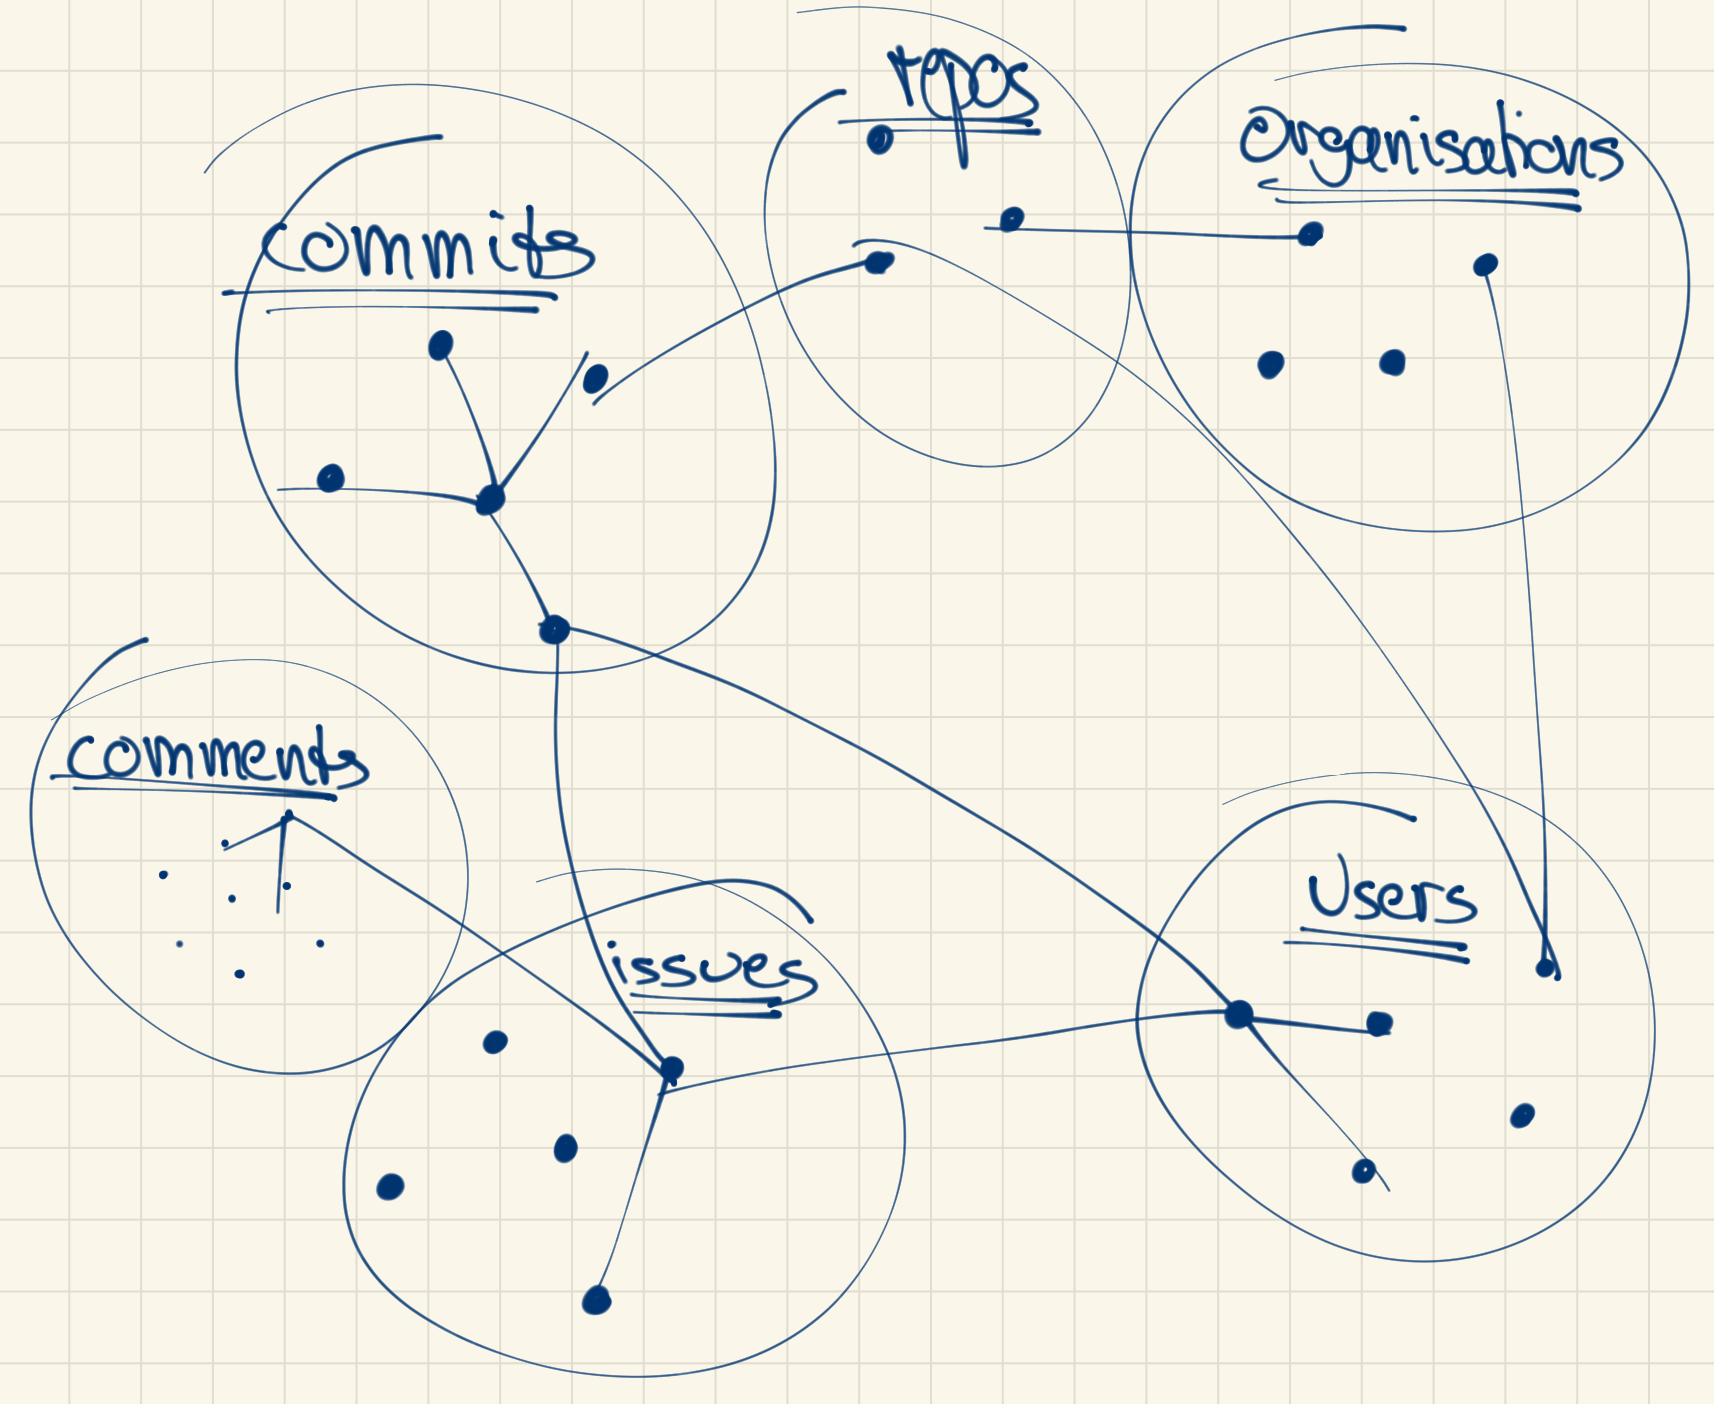 repos
organisations
commits
comments
Users
issues